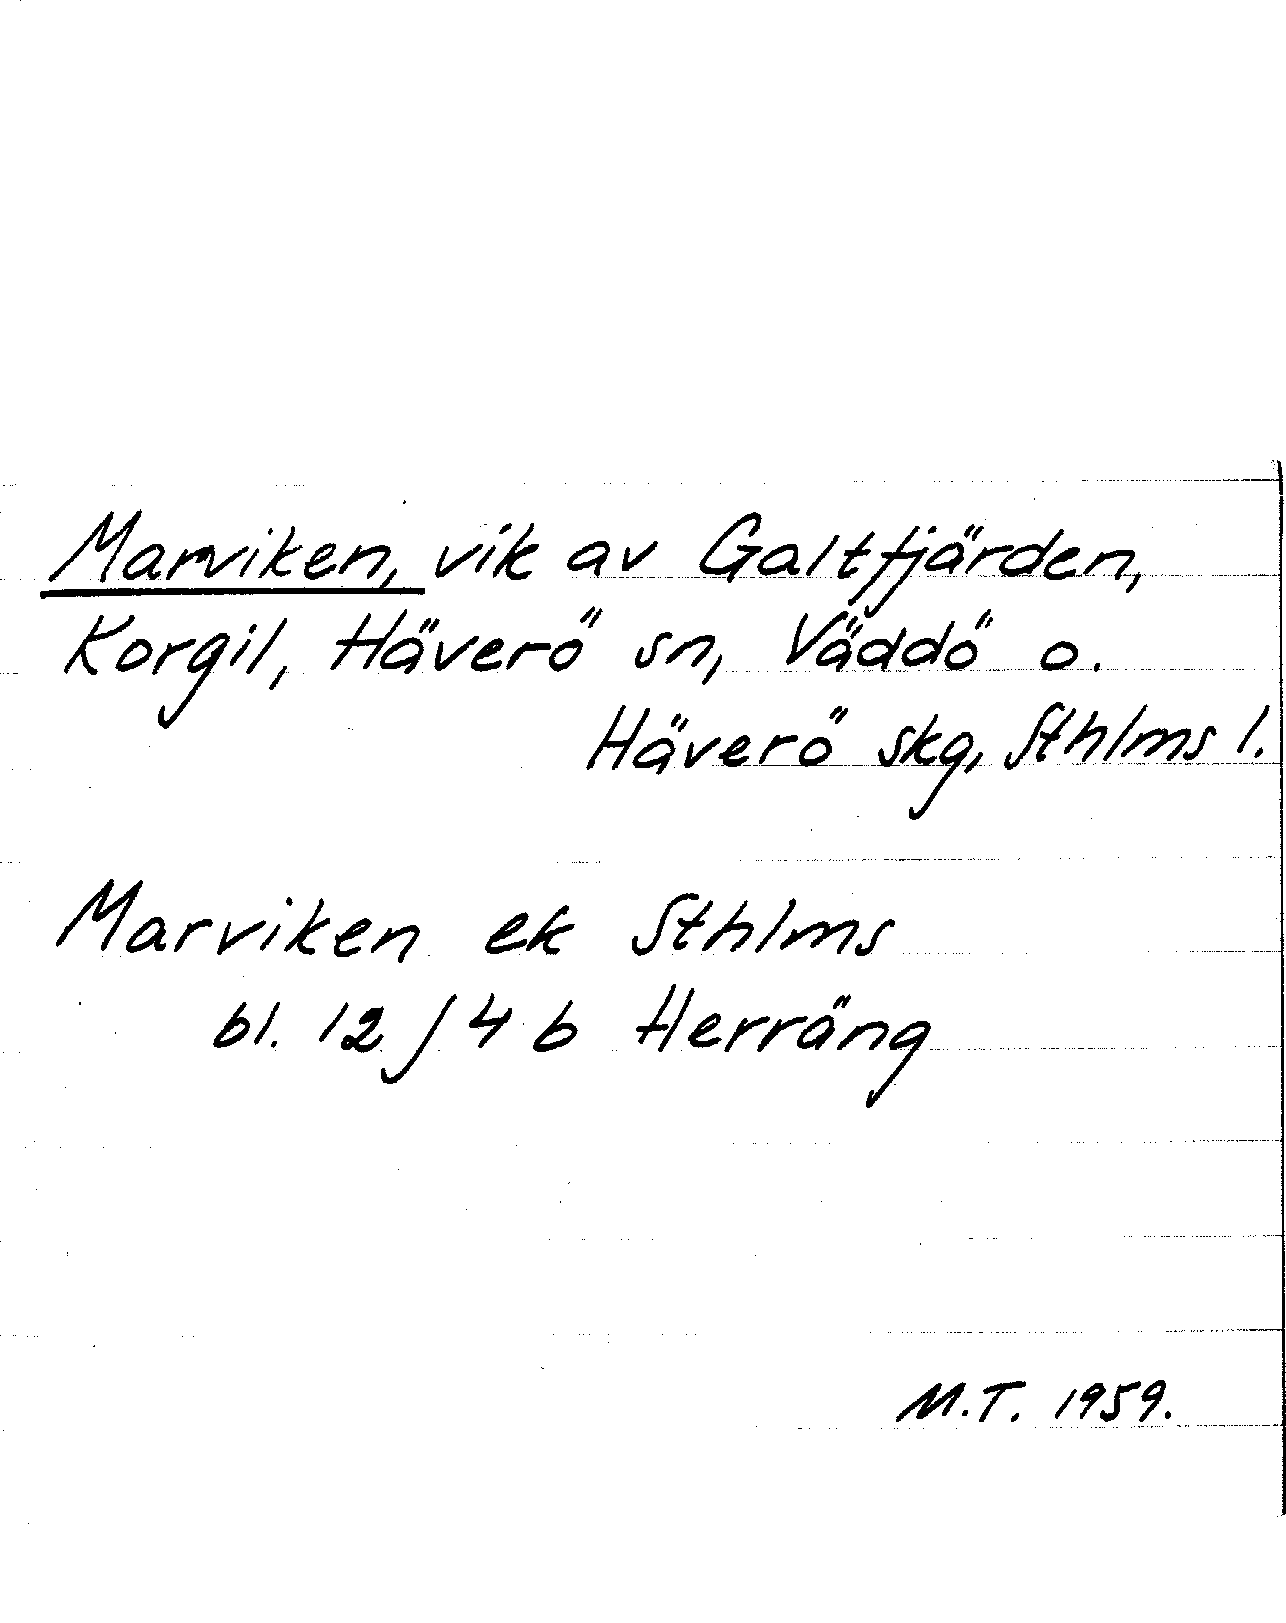 Marviken, vik av Galtfjärden,
Korgil, Häverö sn, Väddö o.
Häverö skg, Sthlms l.
Marviken ek Sthlms
bl. 12 J 4 b Herräng
M.T. 1959.